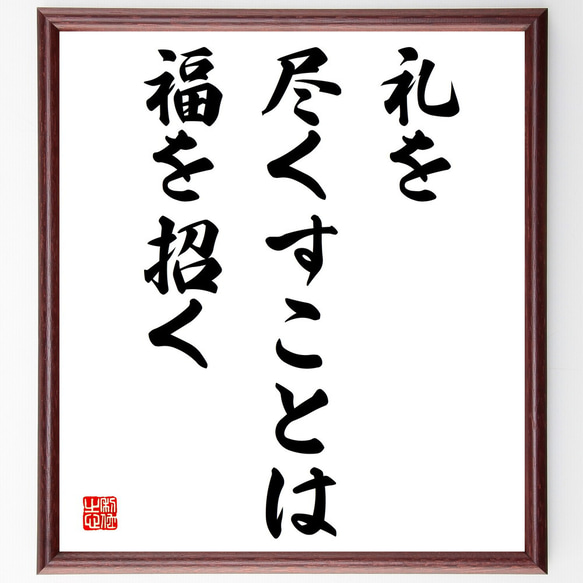 礼を
尽くすことは
福を招く